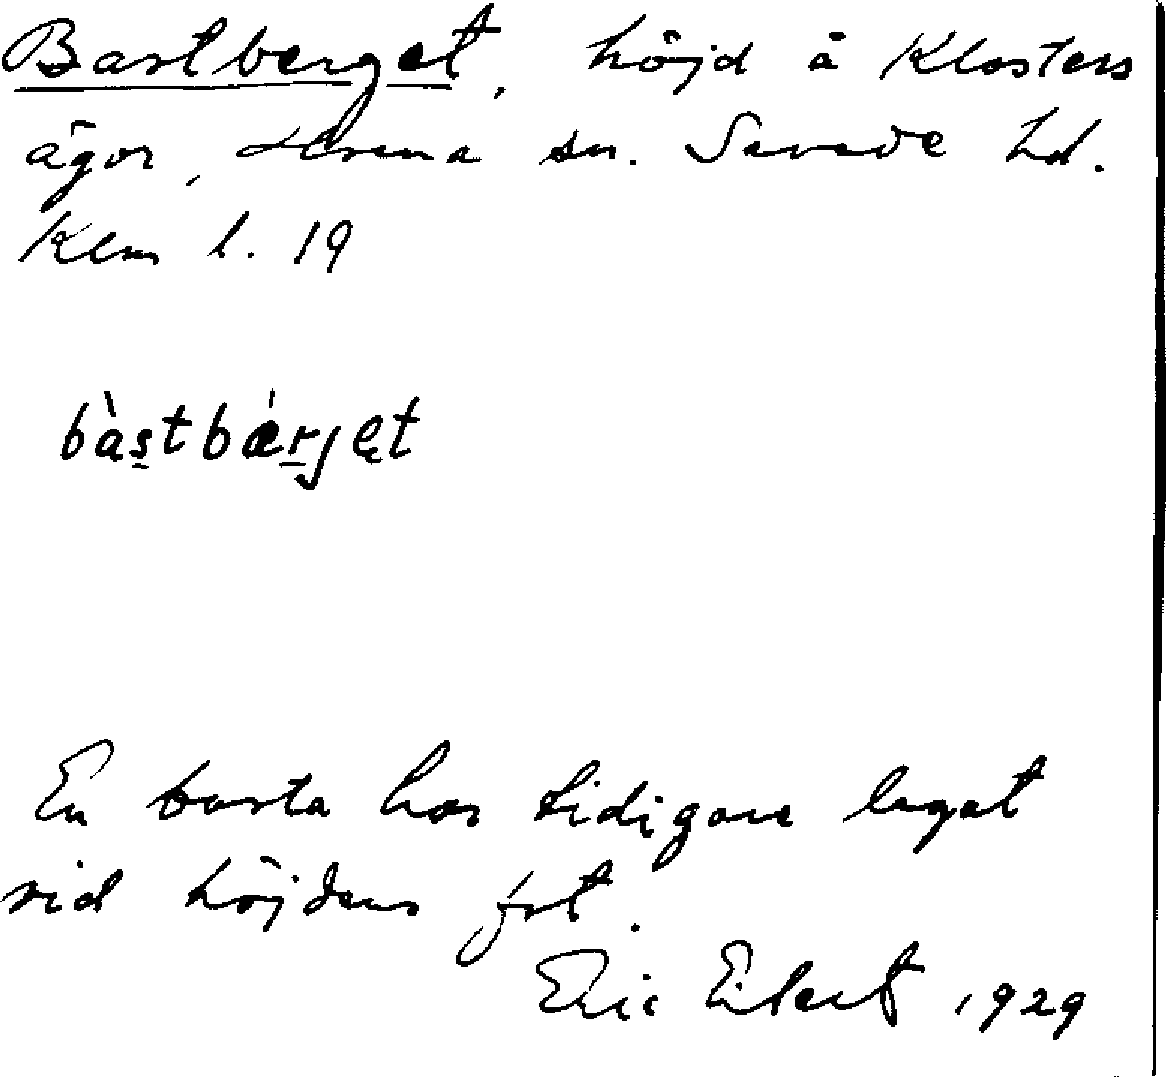 Bastberget, höjd å Klosters
ägor, sn. Sevede hd.
Klm l. 19
bàs̱tbǽṟjęt
En basta har tidigare legat
vid höjdens fot.
Eric 1929